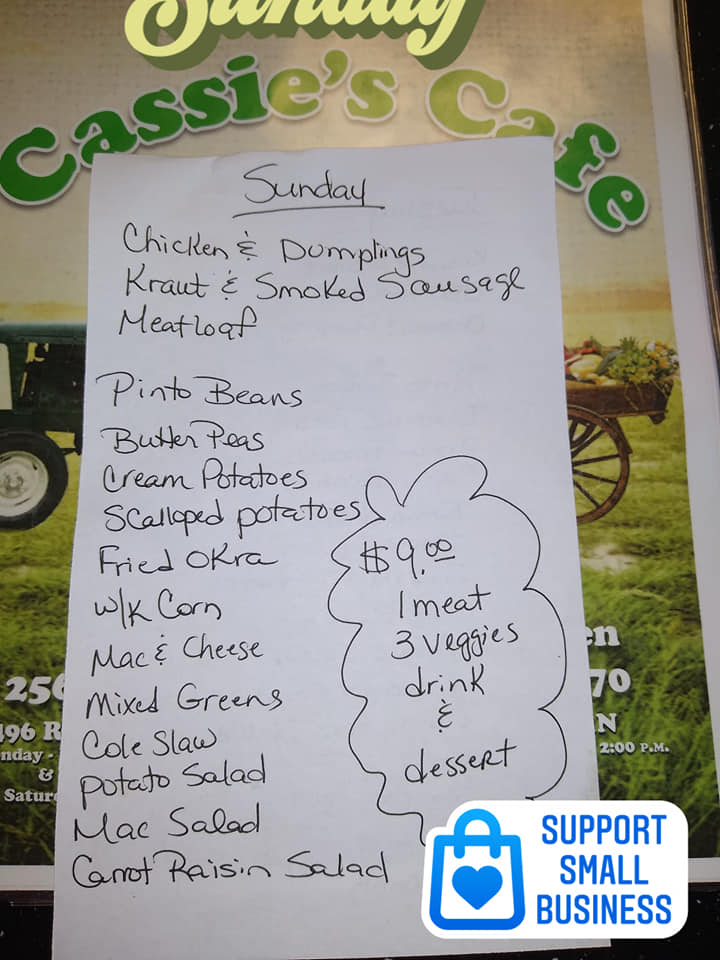 Sunday
Cassie's Cafe
Sunday
Chicken & Dumplings
Kraut & Smoked Sausage
Meatloaf
Pinto Beans
Butter Peas
Cream Potatoes
Scalloped potatoes
Fried Okra
w/k Corn
Mac & Cheese
Mixed Greens
Cole Slaw
potato Salad
Mac Salad
Carrot Raisin Salad
$9.00
1 meat
3 veggies
drink
&
dessert
256
496 R
nday -
&
Satur
en
70
N
2:00 P.M.
SUPPORT
SMALL
BUSINESS